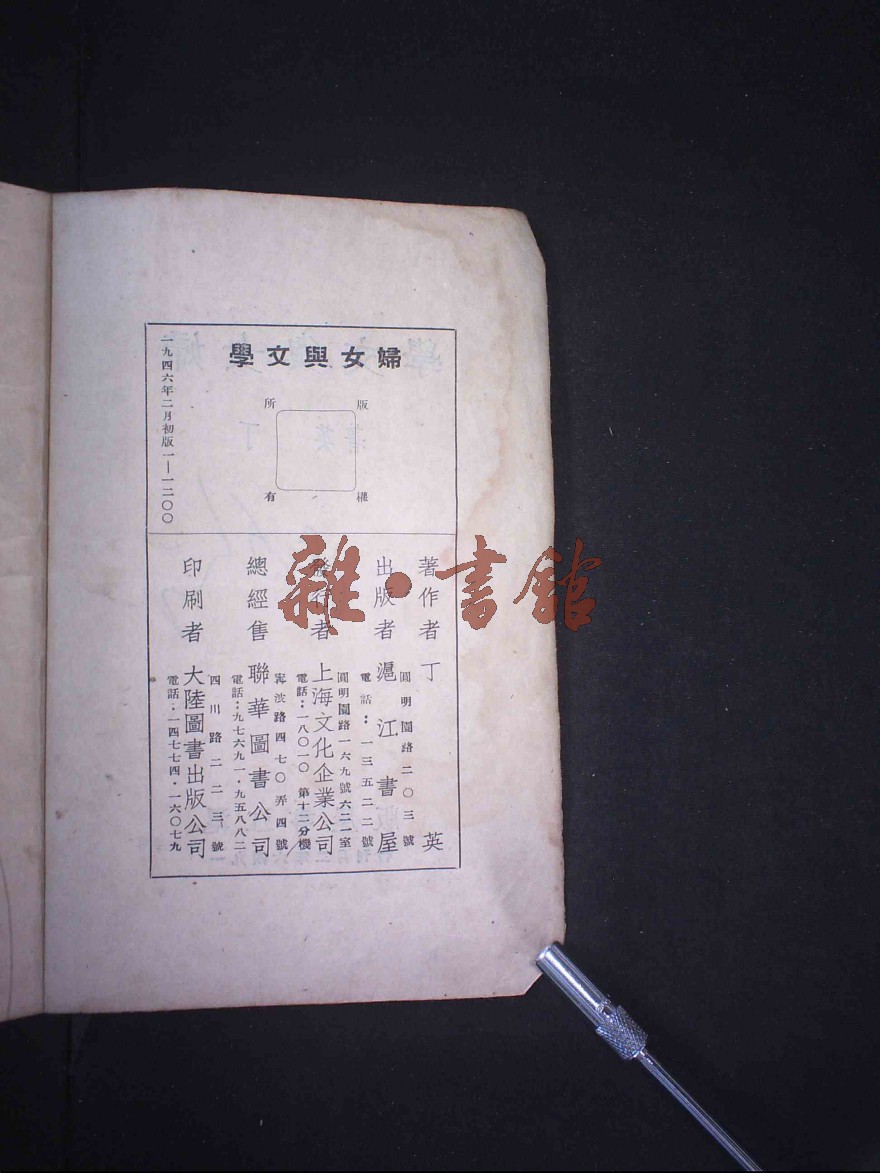 婦女與文學
版權所有
一九四六年二月初版一—一二〇〇
著作者 丁英
出版者 滬江書屋
圓明園路二〇三號
電話：一三五二二號
發行者 上海文化企業公司
圓明園路一六九號六二一室
電話：一八〇一〇 第十二分機
總經售 聯華圖書公司
寗波路四七〇弄四號
電話：九七六九一・九五八八二
印刷者 大陸圖書出版公司
四川路二二三號
電話・一四七七四・一六〇七九
雜・書館